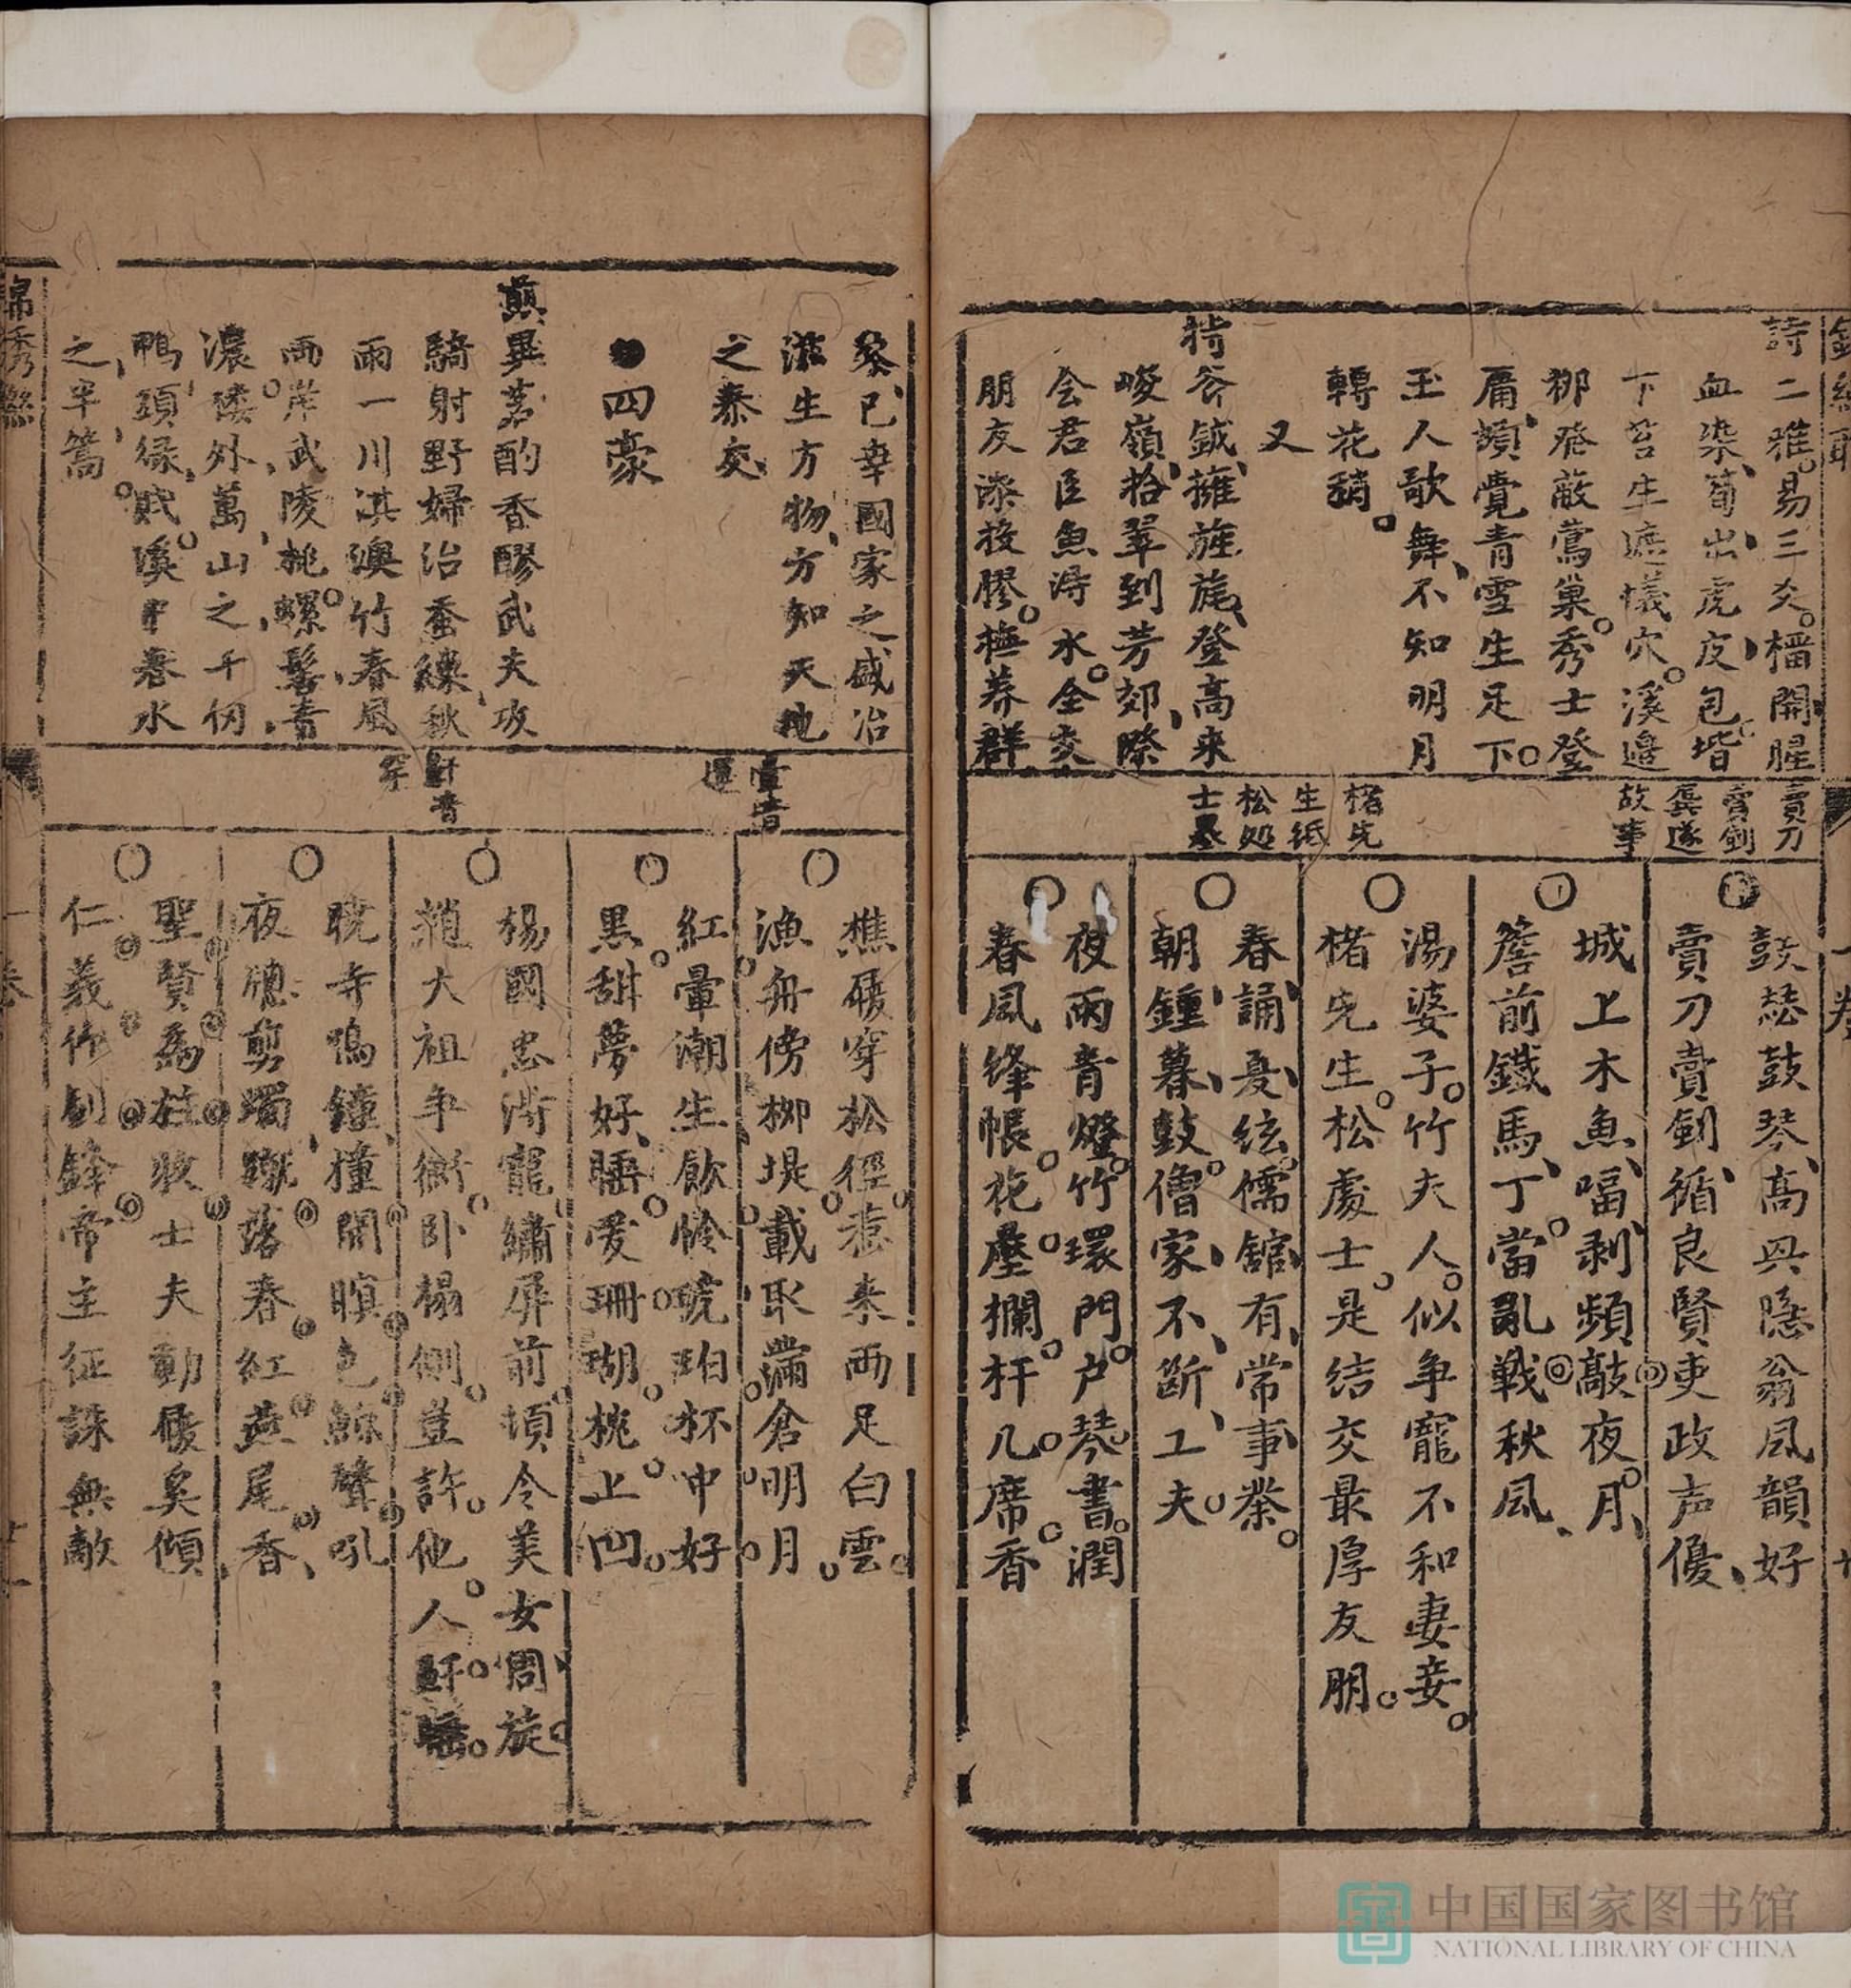 詩二雅易三爻檣開腥
血染萄出虎皮包堦
下苔生遮蟻穴溪邉
柳發蔽鶯巢秀士登
庸頭覺青雲生足下
玉人歌舞不知明月
轉花稍
又
特斧鉞擁旌旄登高來
峻嶺拾翠到芳郊際
会君臣魚淂水全交
朋友漆投膠撫养群
賣刀
賣劍
龔遂
故事
楮先
生紙
松処
士墨
鼓瑟鼓琴高興隐翁風韻好
賣刀賣劍循良賢吏政声優
城上木魚啯剥頻敲夜月
簷前鐵馬丁當乱戰秋風
湯婆子竹夫人似争寵不和妻妾
楮先生松處士是结交最厚友朋
春誦夏絃儒舘有常事業
朝鍾暮鼓僧家不断工夫
夜雨青燈竹環門户琴書潤
春風絳帳花壓欄杆几席香
黎已幸國家之盛治
滋生方物方知天地
之泰交
四豪
煎異茗酌香醪武夫攻
騎射野婦治蚕繰秋
雨一川淇澳竹春風
兩岸武陵桃螺髻青
濃倭外萬山之千仞
鴨頭緑貯溪中春水
之半篙
暈音
運
鼾音
罕
樵屐穿松徑惹来兩足白雲
漁舟傍柳堤載取滿倉明月
紅暈潮生飲怜琥珀杯中好
黒甜夢好睡愛珊瑚枕上凹
楊國忠淂寵繡屏前頃令美女周旋
趙大祖争衡卧榻側豈許他人鼾睡
晓寺鳴鐘撞開暝色鯨聲吼
夜窻剪燭蹴落春紅燕尾香
聖賢為柱妝士夫動屐奚傾
仁義作劍鋒帝主征誅無敵